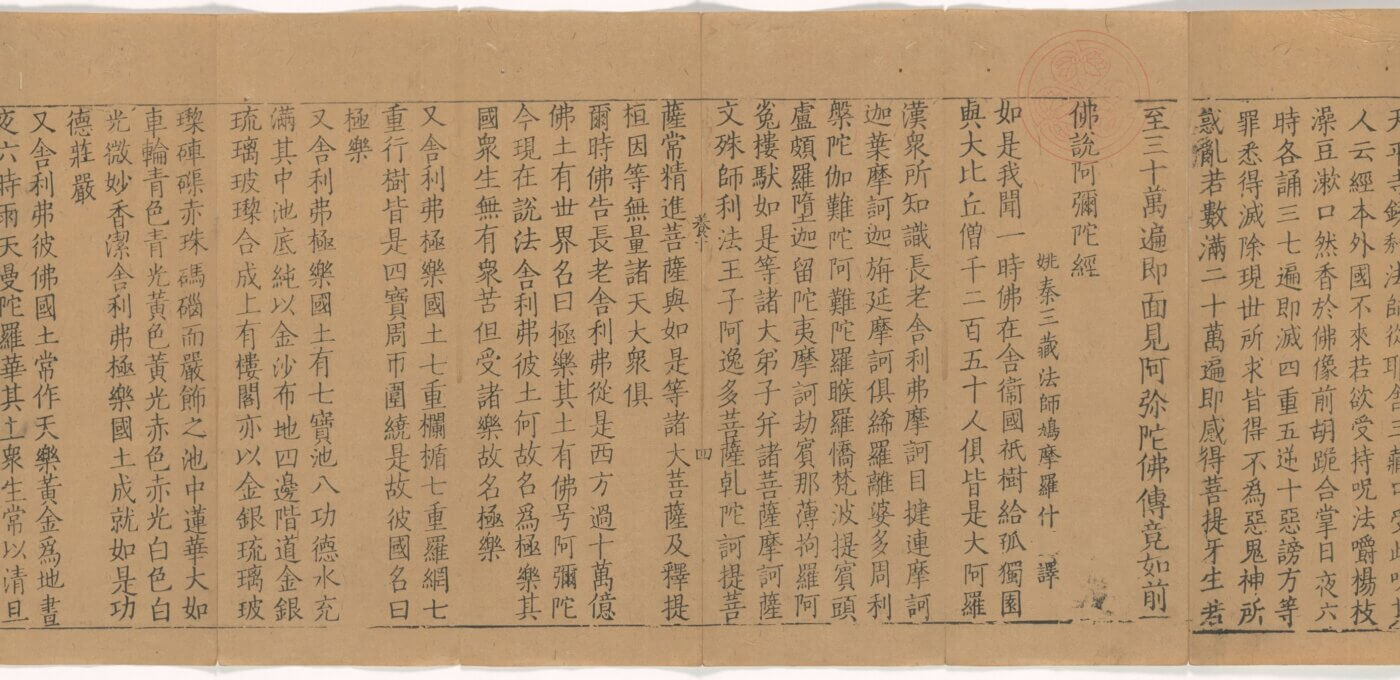 人云經本外國不來若欲受持呪法嚼楊枝
澡豆漱口然香於佛像前胡跪合掌日夜六
時各誦三七遍即滅四重五逆十惡謗方等
罪悉得滅除現世所求皆得不為惡鬼神所
惑亂若數滿二十萬遍即感得菩提牙生若
至三十萬遍即面見阿弥陀佛傳竟如前
佛說阿彌陀經
姚秦三藏法師鳩摩羅什 譯
如是我聞一時佛在舍衛國祇樹給孤獨園
與大比丘僧千二百五十人俱皆是大阿羅
漢眾所知識長老舍利弗摩訶目揵連摩訶
迦葉摩訶迦旃延摩訶俱絺羅離婆多周利
槃陀伽難陀阿難陀羅睺羅憍梵波提賓頭
盧頗羅墮迦留陀夷摩訶劫賓那薄拘羅阿
㝹樓馱如是等諸大弟子并諸菩薩摩訶薩
文殊師利法王子阿逸多菩薩乹陀訶提菩
養十 四
薩常精進菩薩與如是等諸大菩薩及釋提
桓因等無量諸天大眾俱
爾時佛告長老舍利弗從是西方過十萬億
佛土有世界名曰極樂其土有佛号阿彌陀
今現在說法舍利弗彼土何故名為極樂其
國眾生無有眾苦但受諸樂故名極樂
又舍利弗極樂國土七重欄楯七重羅網七
重行樹皆是四寶周帀圍繞是故彼國名曰
極樂
又舍利弗極樂國土有七寶池八功德水充
滿其中池底純以金沙布地四邊階道金銀
琉璃玻瓈合成上有樓閣亦以金銀琉璃玻
瓈硨磲赤珠碼碯而嚴飾之池中蓮華大如
車輪青色青光黃色黃光赤色赤光白色白
光微妙香潔舍利弗極樂國土成就如是功
德莊嚴
又舍利弗彼佛國土常作天樂黃金為地晝
夜六時雨天曼陀羅華其土眾生常以清旦